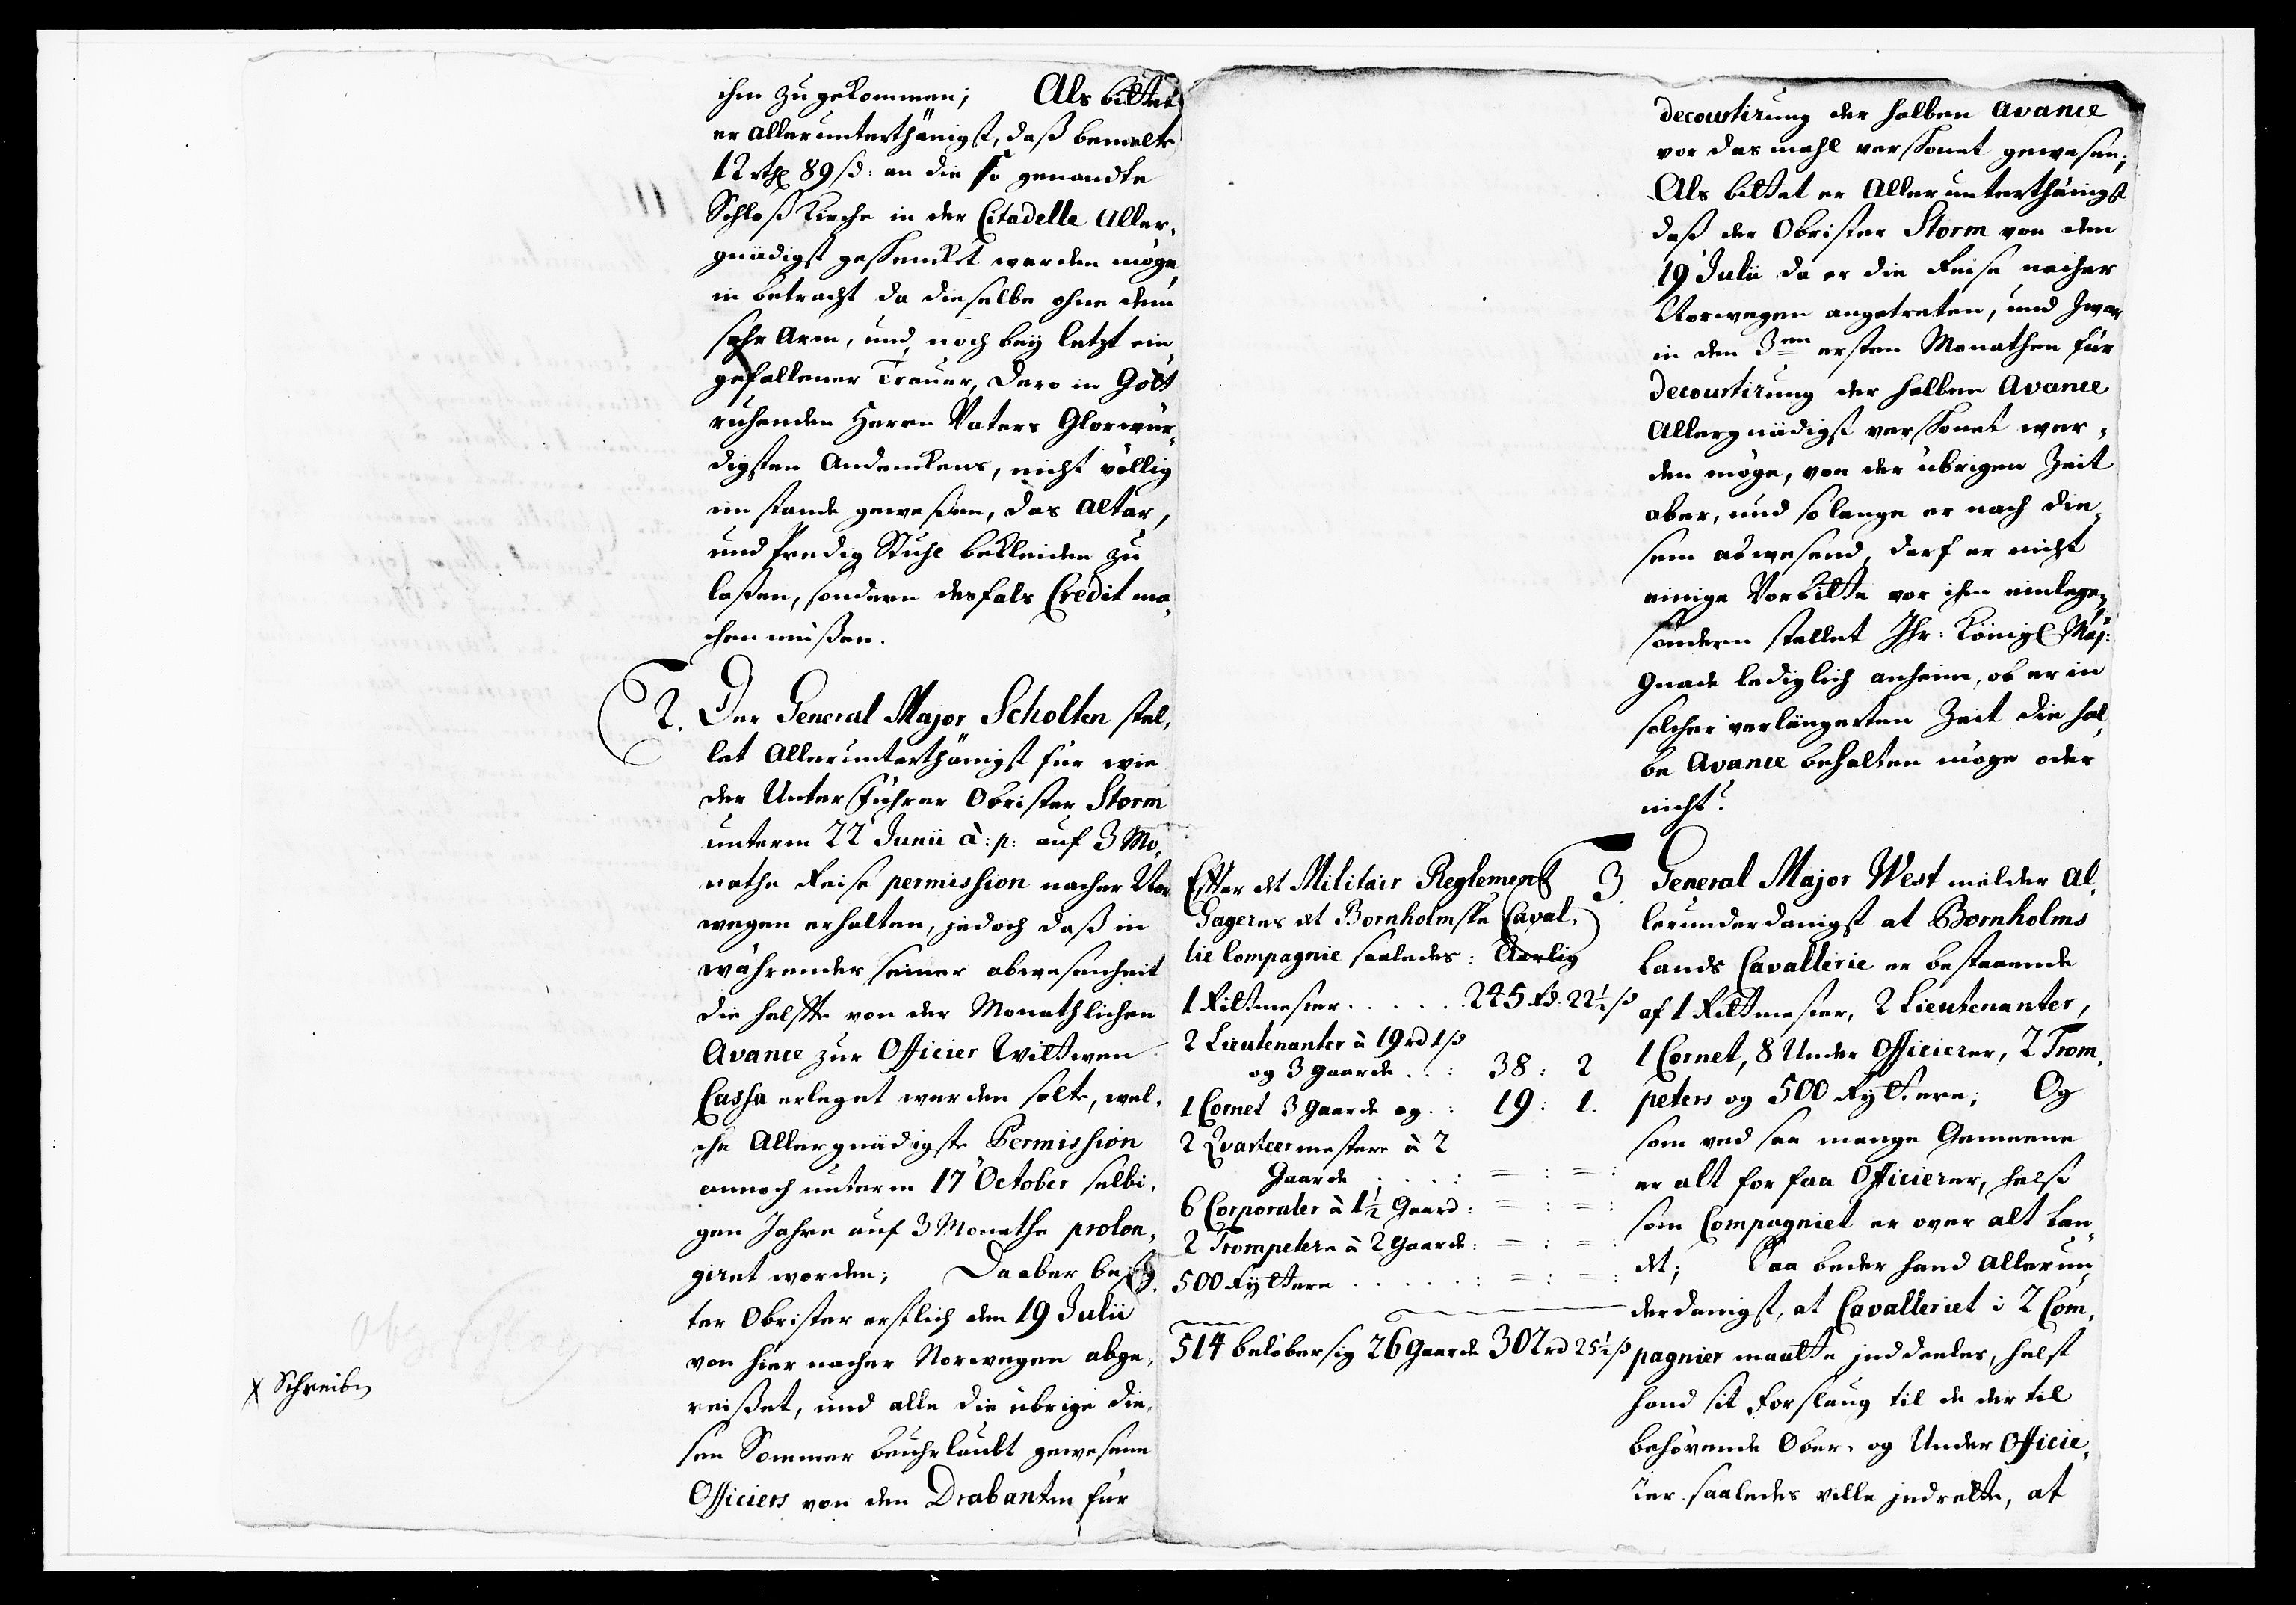 ihm zugekommen; Als bittet
er allerunterthänigst, daß bemelte
12 rthl 89 sd: an die so genandte
Schloß Kirche in der Citadelle Aller-
gnädigst geschencket werden möge
in betracht da dieselbe ohne dem
sehr arm, und noch beÿ letzt ein-
gefallener Trauer, Dero in Gott
ruhenden Herrn Vaters Glorwür-
digsten Andenckens, nicht völlig
im stande gewesen, das Altar,
und Predig Stuhl bekleiden zu
laßen, sondern desfals Credit ma-
chen müßen.
2. Der General Major Scholten stel-
let Allerunterthänigst für wie
der Unter Führer Obrister Storm
unterm 22 Junii à: p: auf 3 Mo-
nathe Reise permission nacher Nor
wegen erhalten, jedoch daß in
währender seiner abwesenheit
die helffte von der Monathlichen
Avance zur Officier Wittwen
Cassa erleget werden solte, wel-
che Allergnädigste Permission
annoch unterm 17 October selbi-
gen Jahrs auf 3 Monathe prolon-
giret worden; Da aber besag-
ter Obrister erstlich den 19 Julii
von hier nacher Norwegen abge-
reißet, und alle die übrige die-
sen Sommer beuhrlaubt gewesene
Officiers von den Drabanten für
X Schreiben
decourtirung der halben avance
vor das mahl verschonet gewesen;
Als bittet er Allerunterthänigst
daß der Obrister Storm von den
19 Julii da er die Reise nacher
Norwegen angetreten, und zwar
in den 3en ersten Monathen für
decourtirung der halben Avance
Allergnädigst verschonet wer-
den möge, von der übrigen Zeit
aber, und so lange er nach die-
sem abwesend, darf er nicht
einige Vorbitte vor ihm einlegen
sondern stellet Ihr: Königl Maj:
Gnade lediglich anheim, ob er in
solcher verlängerten Zeit die hal-
be Avance behalten möge oder
nicht?
Effter det Militair Reglement
Gageres det Bornholmske Caval-
lie Compagnie saaledes: Aarlig
1 Rittmester . . . . . 245 rd: 22½ s
2 Lieutenanter à 19 rd 1 s
og 3 gaarde . . : 38 : 2
1 Cornet 3 gaarde og . : 19 : 1.
2 Qvarteermestere à 2
Gaarde . . . . : = : = :
6 Corporaler à 1½ Gaard : = : = :
2 Trompetere à 2 Gaarde : = : = :
500 Ryttere . . . . . : = : = :
514 beløber sig 26 Gaarde 302 rd 25½ s
3. General Major West melder al-
lerunderdanigst at Bornholms
Lands Cavallerie er bestaaende
af 1 Rittmester, 2 Lieutenanter,
1 Cornet, 8 Under Officierer, 2 Trom-
peters og 500 Ryttere; Og
som ved saa mange Gemeene
er alt for faa Officierer, helst
som Compagniet er over alt Lan-
det; Saa beder hand allerun-
derdanigst, at Cavalleriet i 2 Com-
pagnier maatte inddeeles, helst
hand sit forslaug til de der til
behøvende Ober- og Under Officie-
rer saaledes ville indrette, at